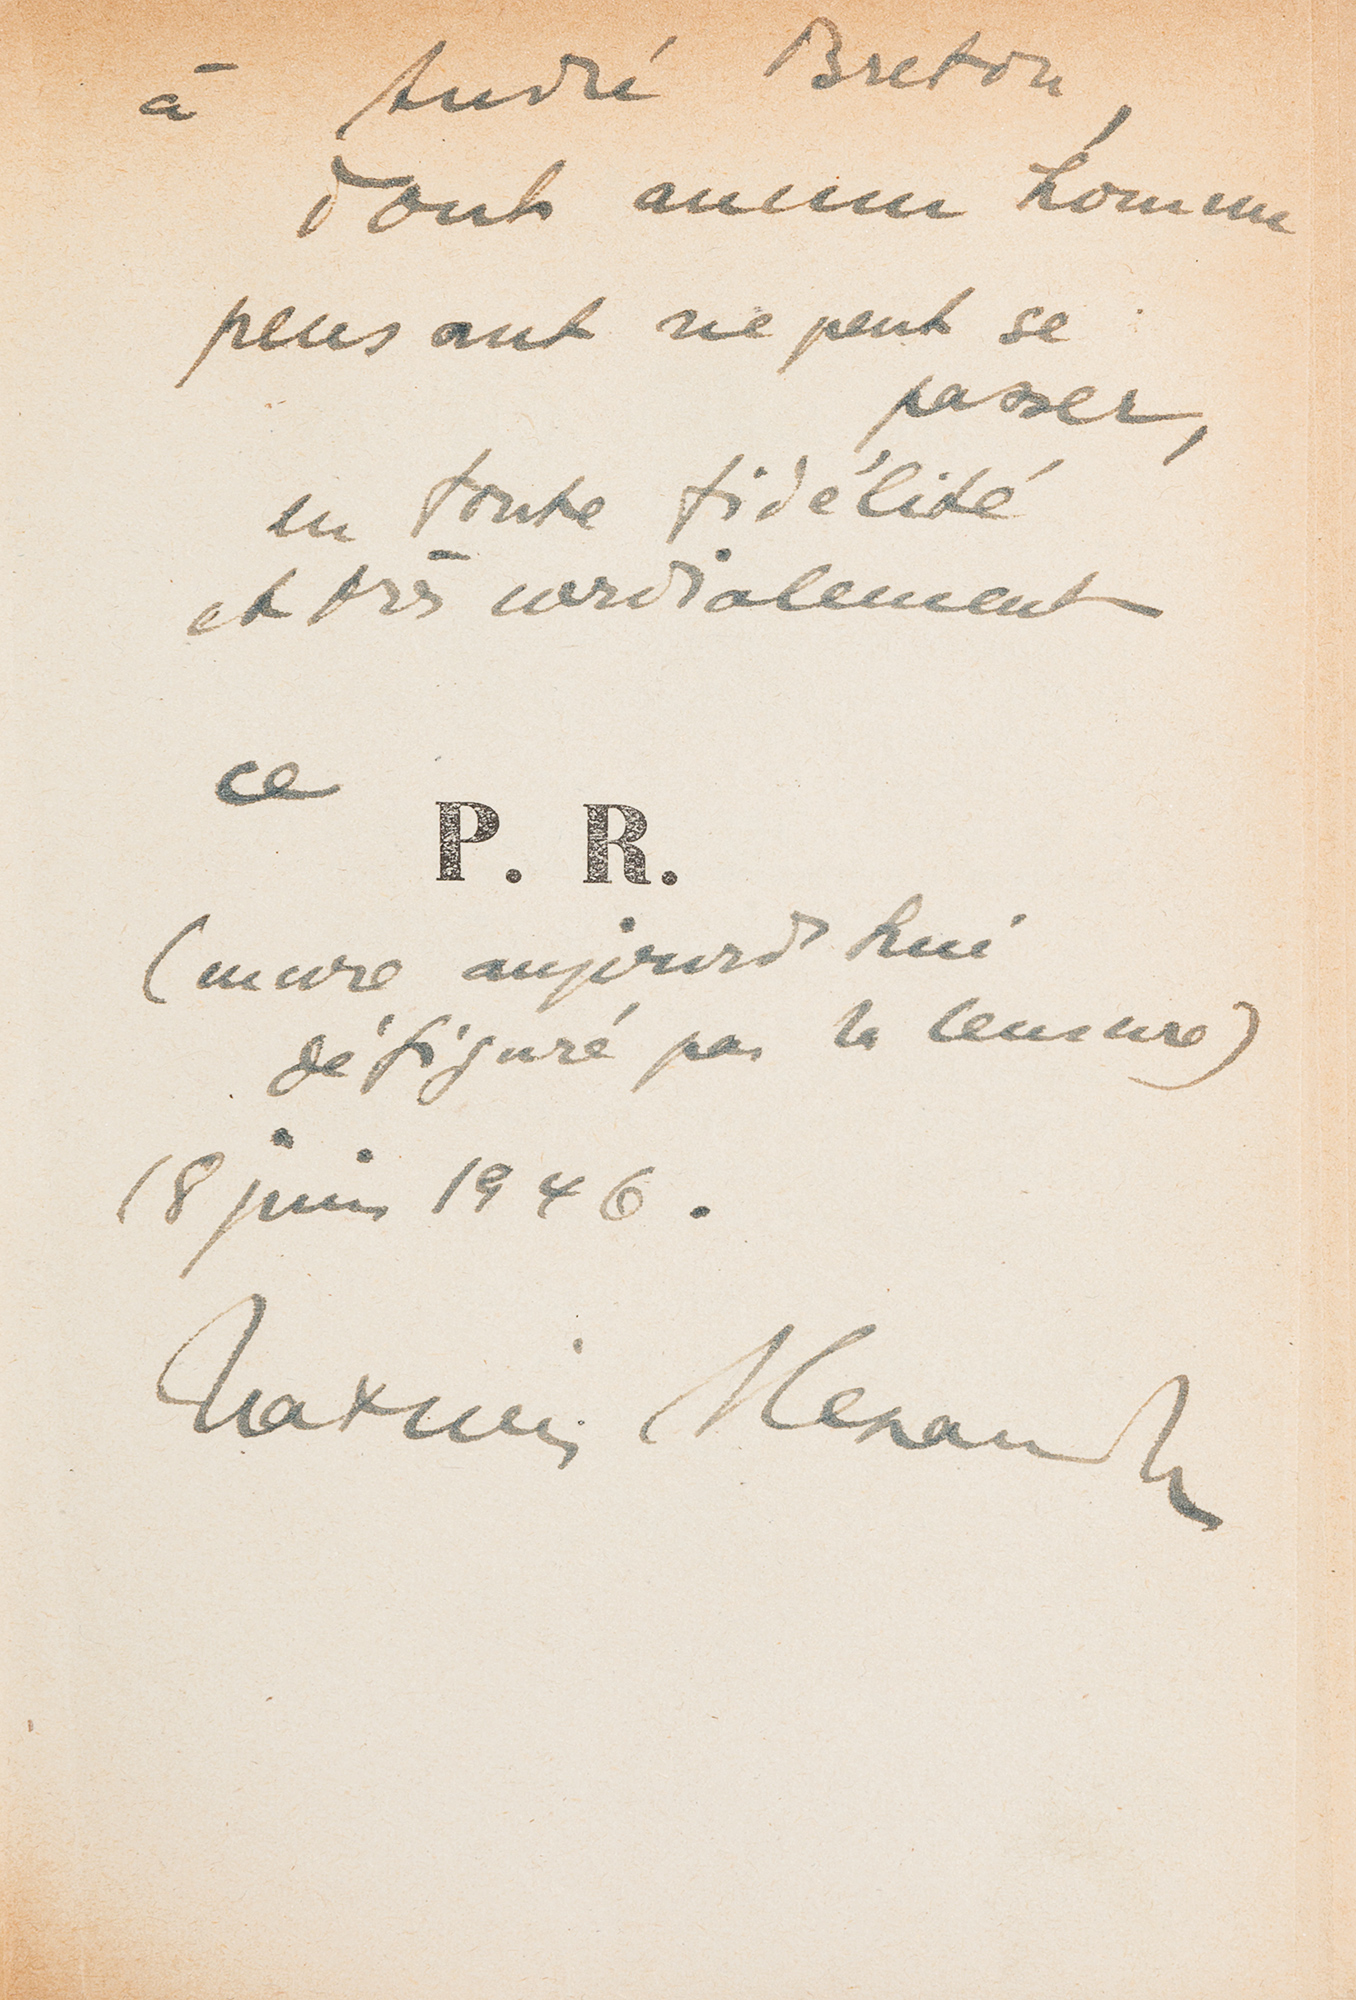 à André Breton,
dont aucun homme
pensant ne peut se
passer,
en toute fidélité
et très cordialement
ce
P. R.
(encore aujourd'hui
défiguré par la censure)
18 juin 1946.
Maxime Alexandre